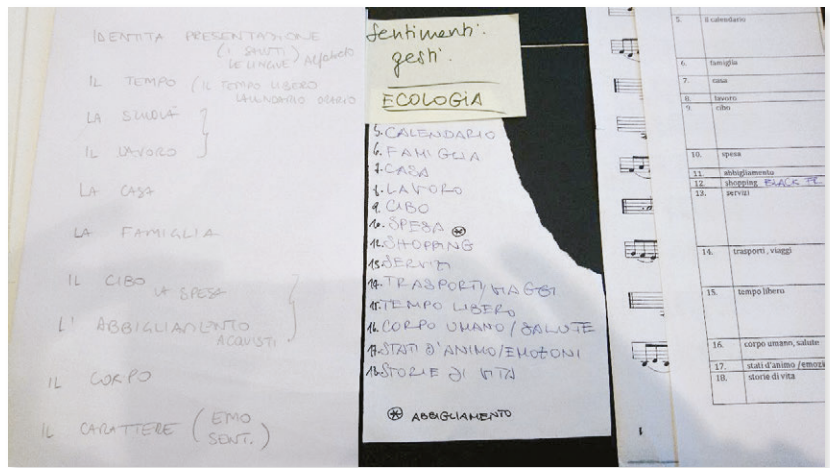 IDENTITA PRESENTAZIONE
(I SALUTI)
LE LINGUE) Alfabeto
IL TEMPO (IL TEMPO LIBERO
CALENDARIO ORARIO
LA SCUOLA
IL LAVORO
LA CASA
LA FAMIGLIA
IL CIBO
LA SPESA
L' ABBIGLIAMENTO
ACQUISTI
IL CORPO
IL CARATTERE (EMO
SENT.)
Sentimenti.
gesti.
ECOLOGIA
5. CALENDARIO
6. FAMIGLIA
7. CASA
8. LAVORO
9. CIBO
10. SPESA ⊛
12. SHOPPING
13. SERVIZI
14. TRASPORTI/VIAGGI
15. TEMPO LIBERO
16. CORPO UMANO/SALUTE
17. STATI D'ANIMO/EMOZIONI
18. STORIE DI VITA
⊛ ABBIGLIAMENTO
5. il calendario
6. famiglia
7. casa
8. lavoro
9. cibo
10. spesa
11. abbigliamento
12. shopping BLACK FR
13. servizi
14. trasporti, viaggi
15. tempo libero
16. corpo umano, salute
17. stati d'animo /emozi
18. storie di vita